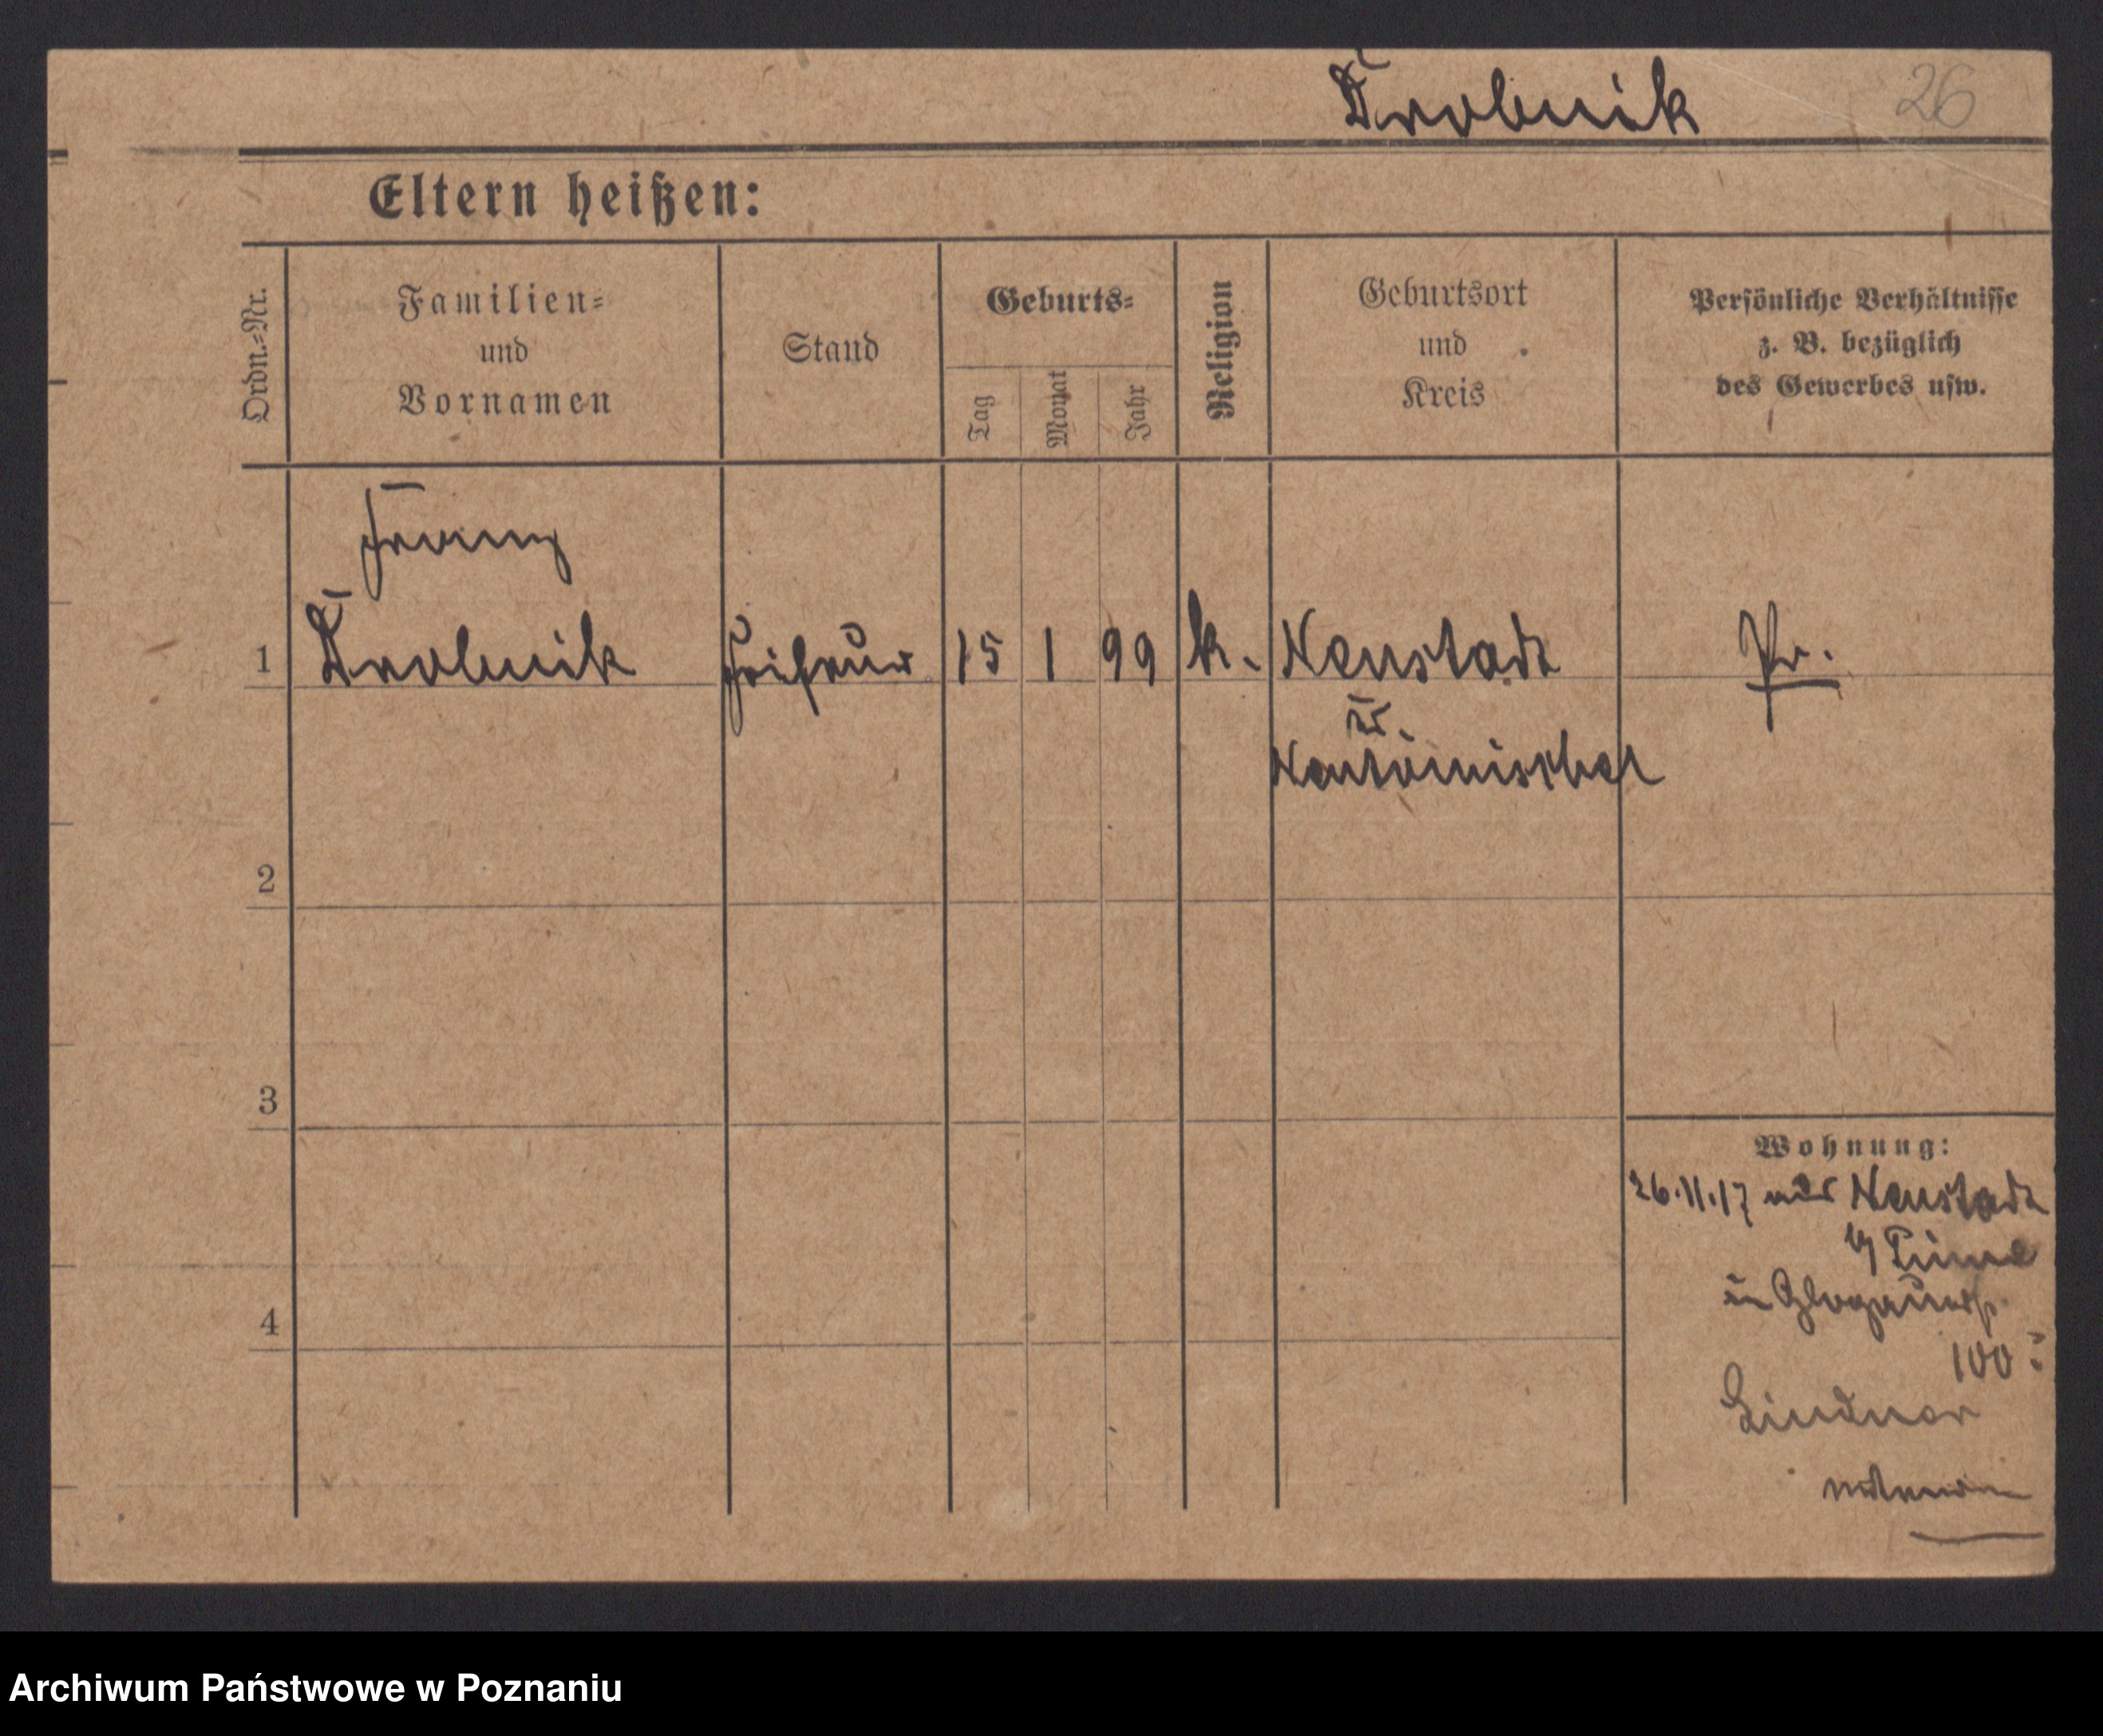 Drobnik 26
Eltern heißen:
Ordn.=Nr.
Familien=
und
Vornamen
Stand
Geburts=
Tag
Monat
Jahr
Religion
Geburtsort
und
Kreis
Persönliche Verhältnisse
z. B. bezüglich
des Gewerbes usw.
Franz
1 Drobnik Friseur 15 1 99 k. Neustadt Pr.
Neutomischel
2
3
Wohnung:
26.11.17 aus Neustadt
b/ Pinne
in Glogauerstr.
4
100 :
Lindner
Archiwum Państwowe w Poznaniu